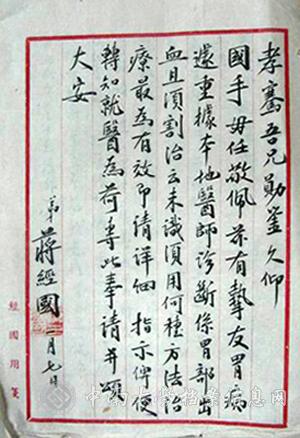 孝騫吾兄勛鉴久仰
國手毋任敬佩茲有摯友胃病
遽重據本地醫師診斷係胃部出
血且須割治云未識須用何種方法治
療最為有效即請詳細指示俾便
轉知就醫為荷專此奉請并頌
大安
弟蔣經國
二月七日
經國用箋